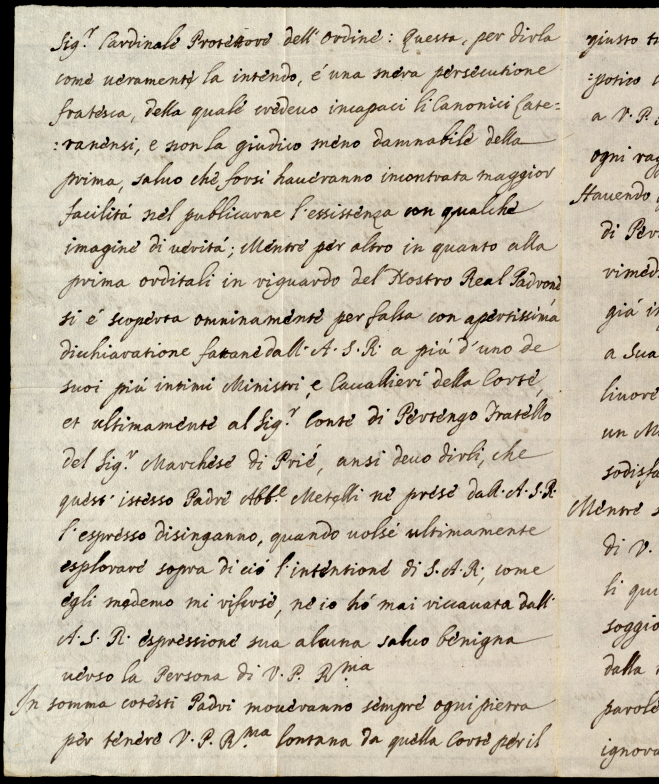 Sig.r Cardinale Protettore dell'Ordine: Questa, per dirla
come veramente la intendo, é una mera persecutione
fratesca, della quale credevo incapaci li Canonici Late=
:ranensi, e non la giudico meno damnabile della
prima, salvo che forsi haveranno incontrata maggior
facilitá nel publicarne l'essistenza con qualche
imagine di veritá; Mentre per altro in quanto alla
prima orditali in riguardo del Nostro Real Padrone
si é scoperta omninamente per falsa con apertissima
dichiaratione fattane dall'A.S.R. a piú d'uno de
suoi piú intimi Ministri, e Cavallieri della Corte,
et ultimamente al Sig.r Conte di Pertengo Fratello
del Sig.r Marchese di Prié, ansi devo dirli, che
quest'istesso Padre Abb.e Metelli ne prese dall'A.S.R.
l'espresso disinganno, quando volse ultimamente
esplorare sopra di ció l'intentione di S.A.R., come
egli medemo mi riferse, ne io hó mai riccavata dall'
A.S.R. espressione sua alcuna salvo benigna
verso la Persona di V.P. R.ma
In somma cotesti Padri moveranno sempre ogni pietra
per tenere V.P. R.ma lontana da quella Corte per il
giusto
a V.P.
ogni
Havendo
di
già
a Sua
livore
un
Mentre
di V.
li
dalla
parole